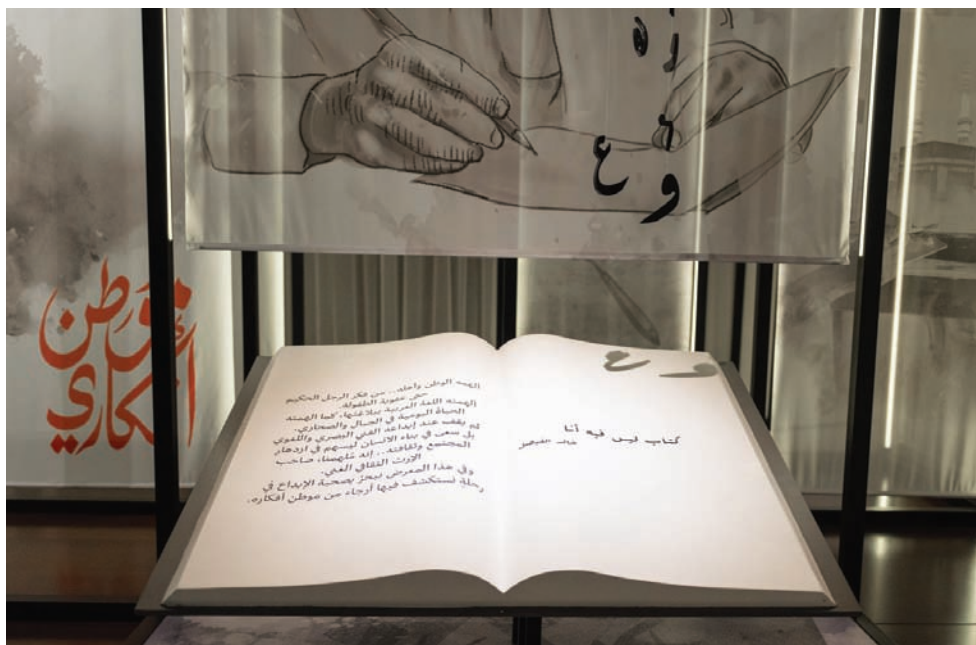 موطن
أفكاري
و ع
و ع
كتاب ليس فيه أنا
ألهمه الوطن وأهله... من فكر الرجل الحكيم
حتى عفوية الطفولة.
ألهمته اللغة العربية ببلاغتها، كما ألهمته
الحياة اليومية في الجبال والصحاري.
لم يقف عند إبداعه الفني البصري واللغوي
بل سعى في بناء الانسان ليسهم في ازدهار
المجتمع وثقافته... إنه مُلهمنا، صاحب
الإرث الثقافي الغني.
وفي هذا المعرض نبحر بصحبة الإبداع في
رحلة نستكشف فيها أرجاء من موطن أفكاره.